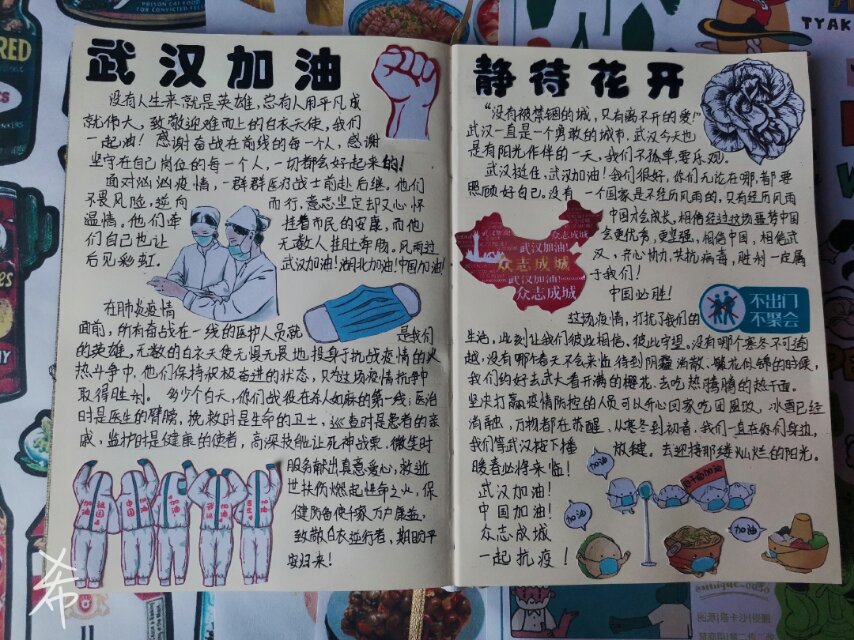 武汉加油
没有人生来就是英雄，总有人用平凡成
就伟大，致敬迎难而上的白衣天使，我们
一起加油！感谢奋战在前线的每一个人，感谢
坚守在自己岗位的每一个人，一切都会好起来的！
面对汹汹疫情，一群群医疗战士前赴后继，他们
不畏风险，逆向而行，意志坚定却又心怀
温情。他们牵挂着市民的安康，而他
们自己也让无数人挂肚牵肠。风雨过
后见彩虹。武汉加油！湖北加油！中国加油！
在肺炎疫情
面前，所有奋战在一线的医护人员就是我们
的英雄。无数的白衣天使无惧无畏地投身于抗战疫情的火
热斗争中，他们保持积极奋进的状态，只为这场疫情抗争中
取得胜利。多少个白天，你们战役在杀人如麻的第一线；医治
时是医生的臂膀，挽救时是生命的卫士，巡查时是患者的亲
戚，监护时是健康的使者，高深技能让死神战栗，微笑时
服务献出真意爱心，救逝
世扶伤燃起性命之火，保
健防备使千家万户康益，
致敬白衣逆行者，期盼平
安归来！
静待花开
“没有被禁锢的城，只有离不开的爱！”
武汉一直是一个勇敢的城市，武汉今天也
是有阳光作伴的一天，我们不孤单要乐观。
武汉挺住，武汉加油！我们很好，你们无论在哪，都要
照顾好自己。没有一个国家是不经历风雨的，只有经历风雨
中国才会成长，相信经过这场噩梦中国
会更优秀，更坚强，相信中国，相信武
汉，齐心协力，共抗病毒，胜利一定属
于我们！
中国必胜！
武汉加油！
众志成城
武汉加油！
众志成城
不出门
不聚会
这场疫情，打扰了我们的
生活，此刻让我们彼此相信，彼此守望。没有哪个寒冬不可逾
越，没有哪个春天不会来临。待到阴霾消散、繁花似锦的时候，
我们约好去武大看开满的樱花，去吃热腾腾的热干面。
坚决打赢疫情防控的人员可以开心回家吃团圆饭，冰雪已经
消融，万物都在苏醒，从寒冬到初春，我们一直在你们身边，
我们等武汉按下播放键。去迎接那缕灿烂的阳光。
暖春必将来临！
武汉加油！
中国加油！
众志成城
一起抗疫！
加油
加油
加油
希